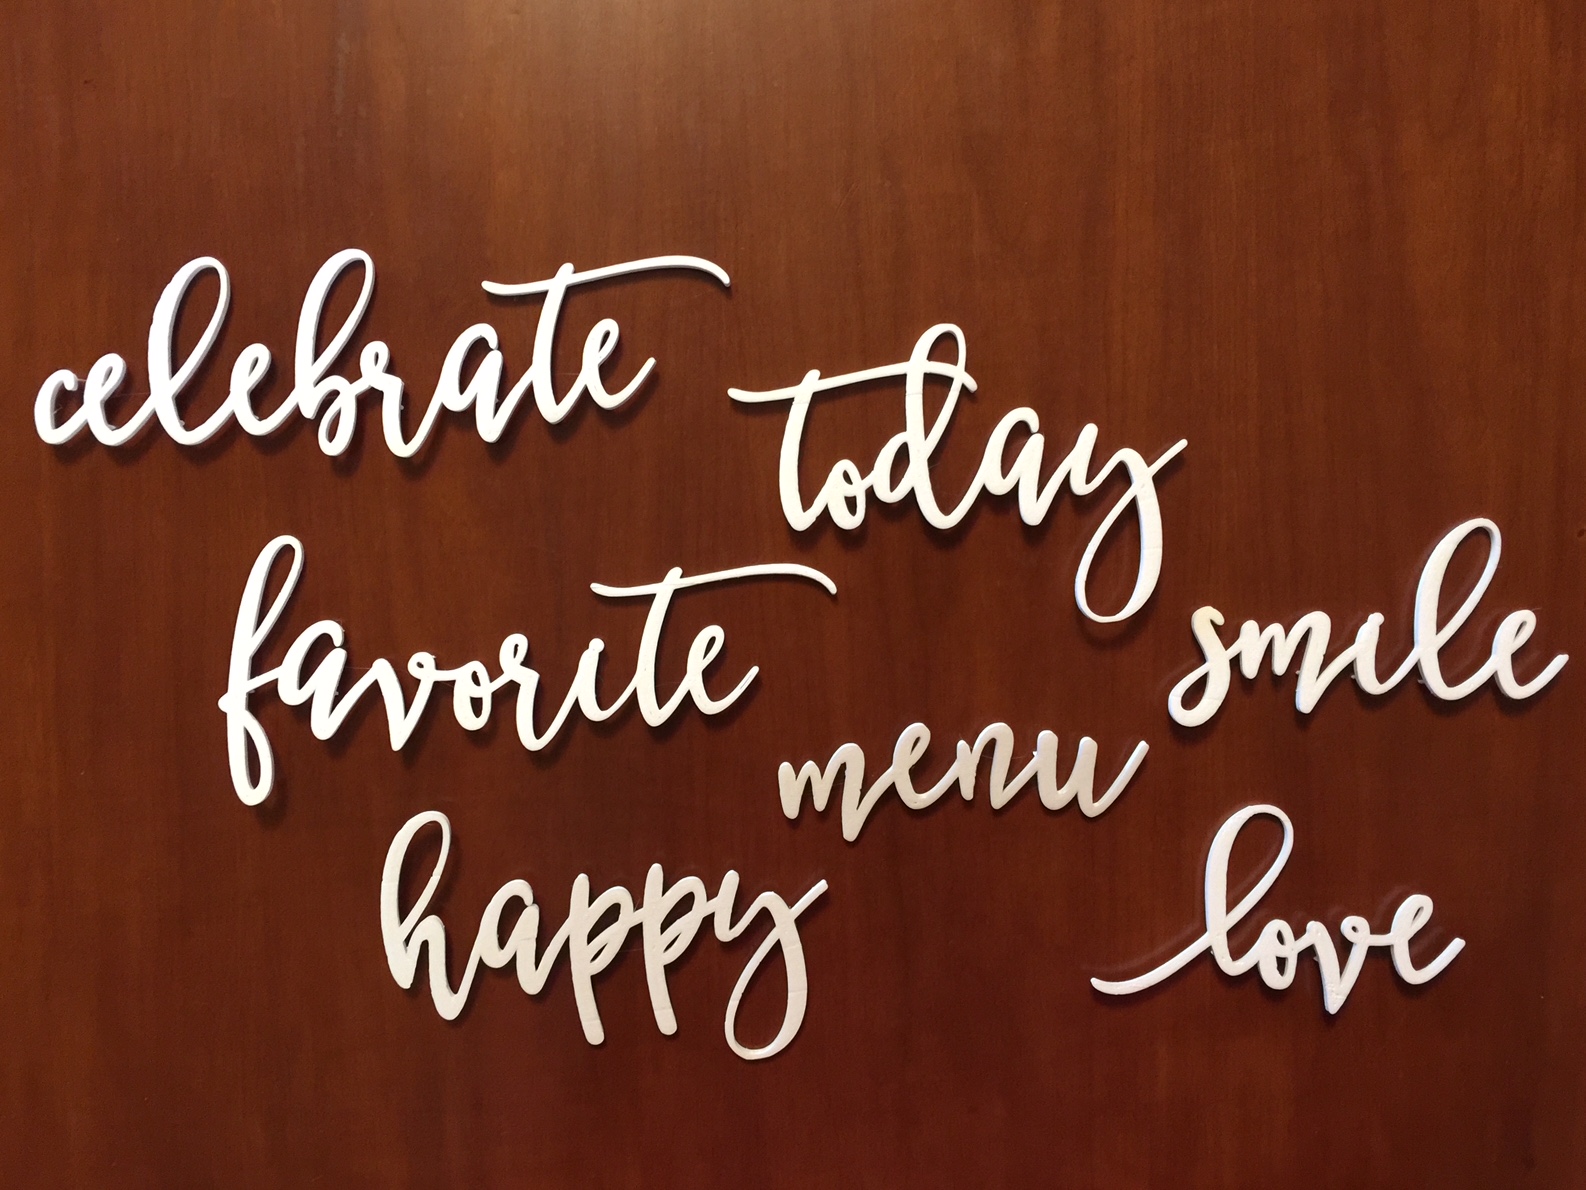 celebrate
today
favorite
smile
menu
happy
love